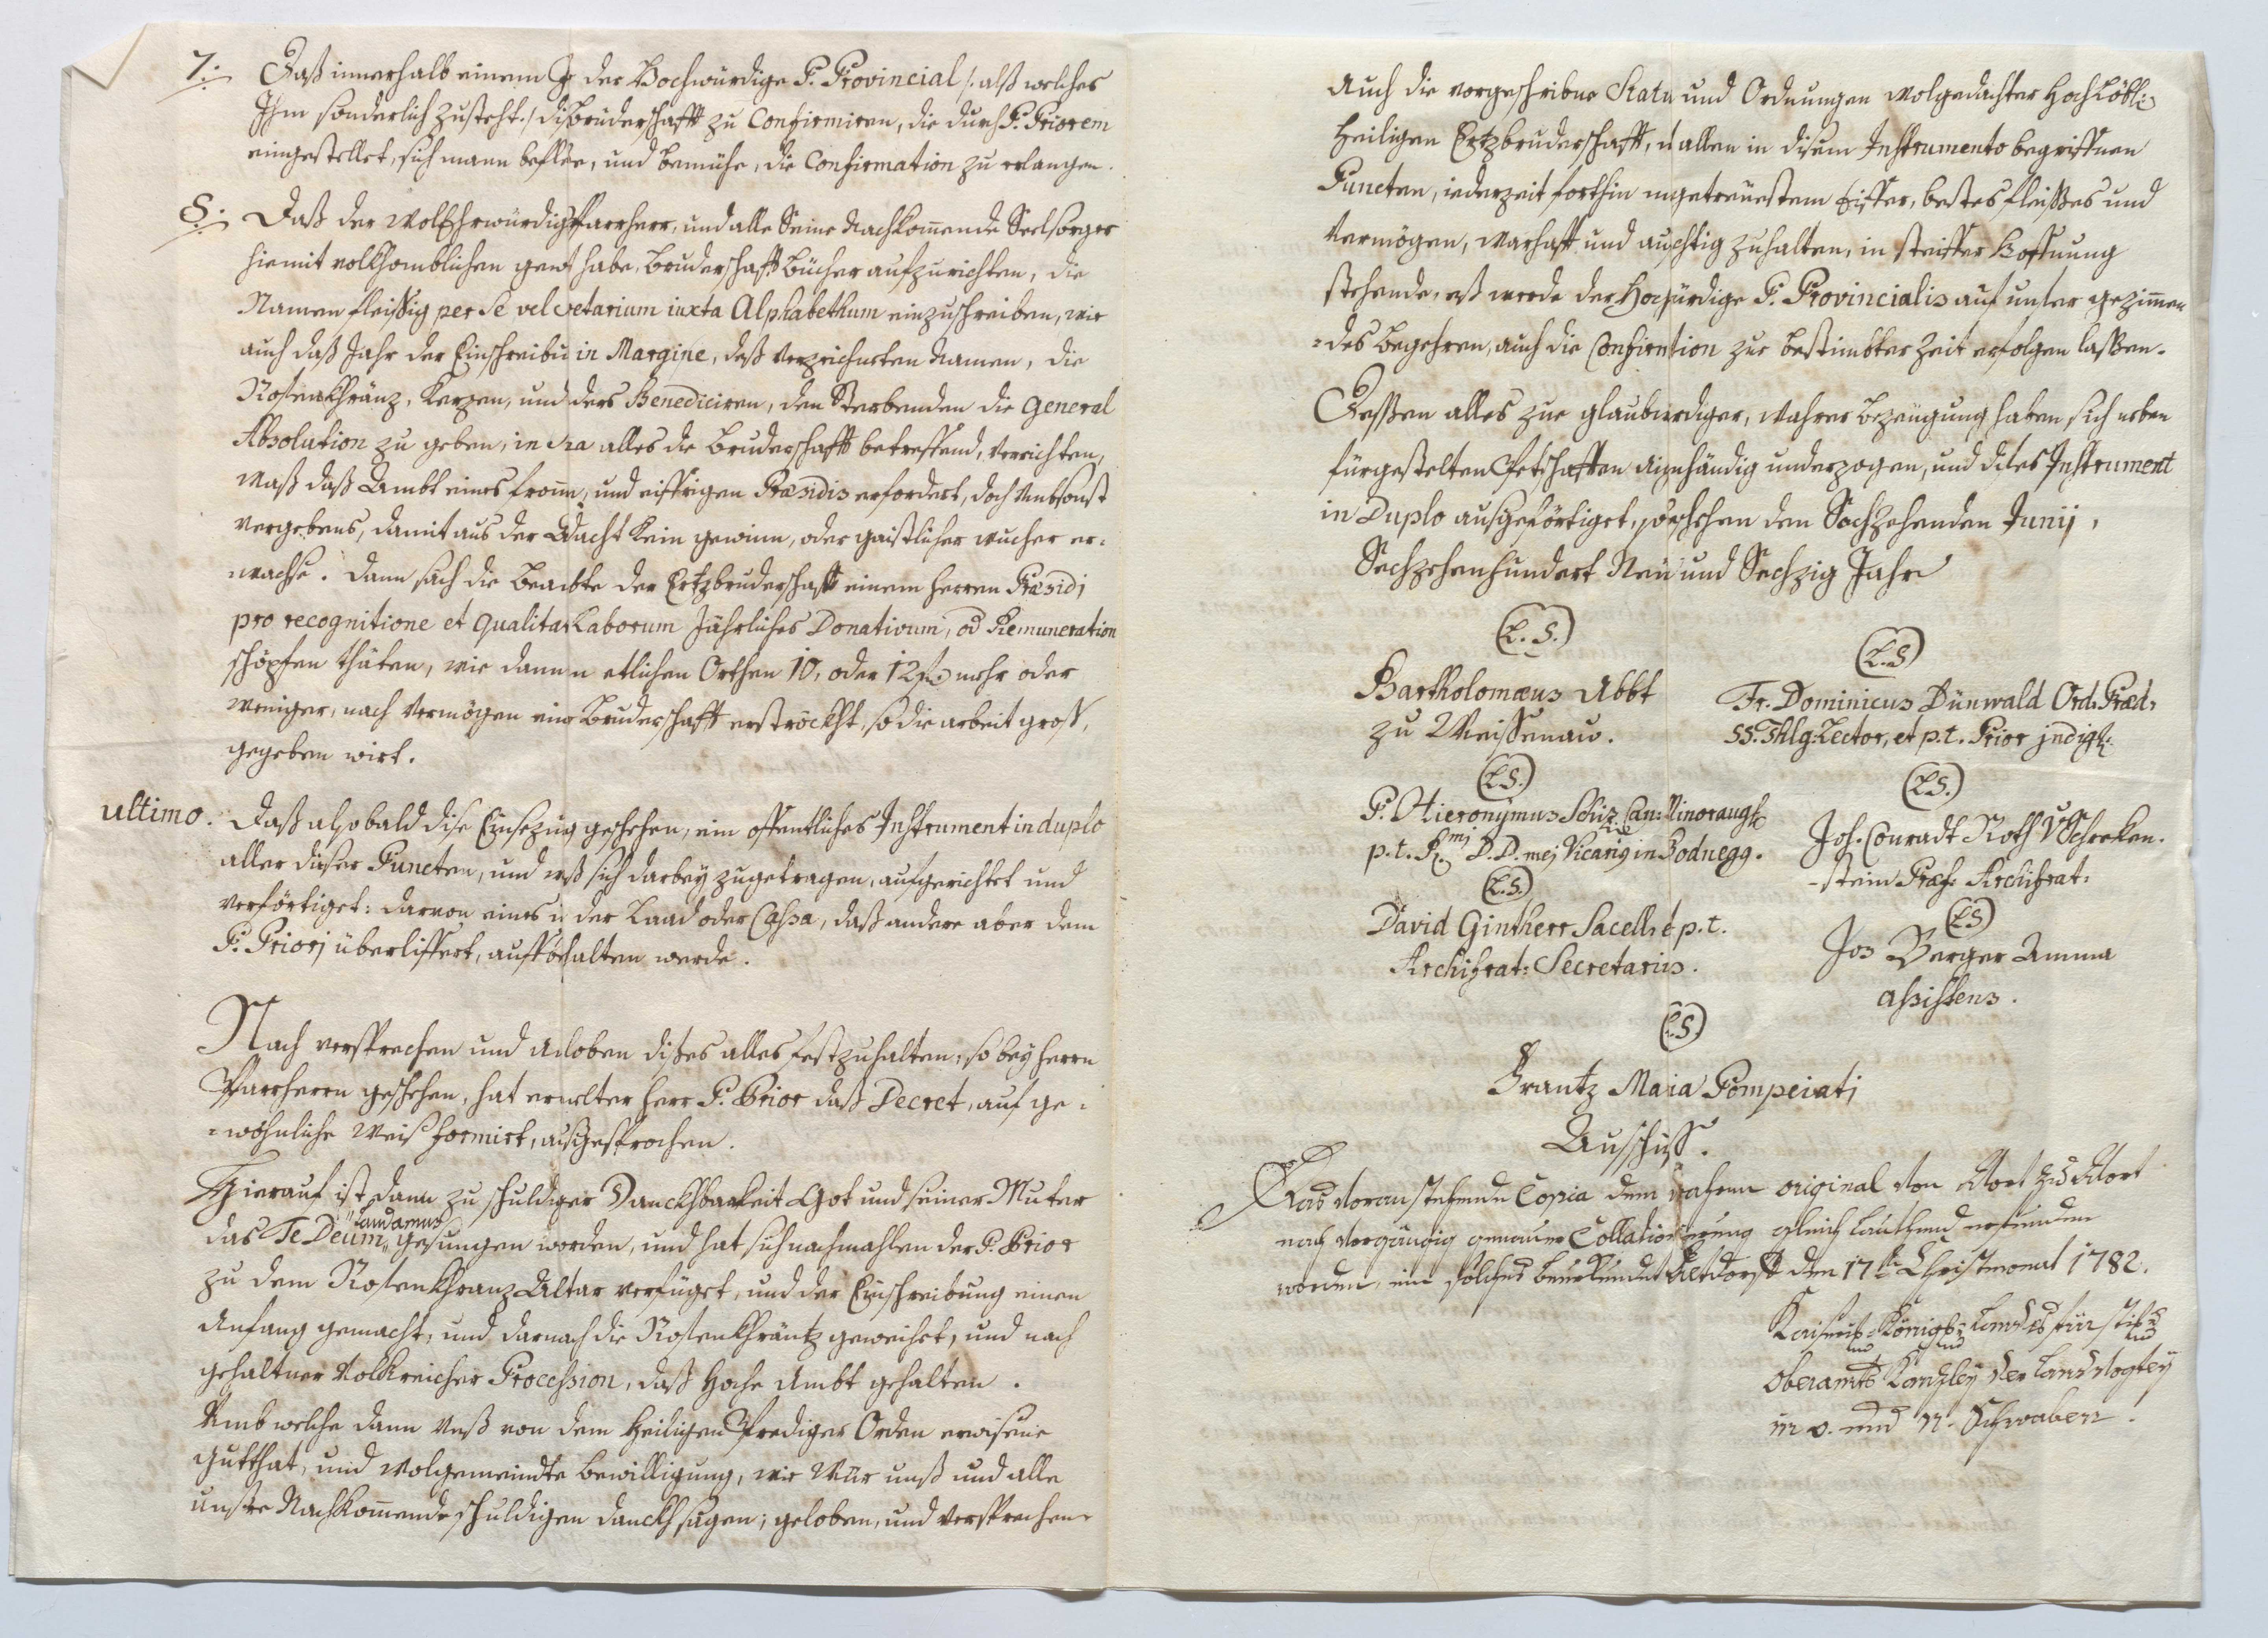 7. Daß innerhalb einem Jr der Hochwürdige P. Provincial /: alß welches
Ihm sonderlich zusteht :/ diß Bruderschafft zu Confirmiren, die durch P. Priorem
eingestellet, sich mann befliße, und bemühe, die Confirmation zu erlangen.
8. Daß der WolEhrwürdig Pfarrherr, und alle Seine Nachkomende Seelsorger
hiemit vollkhomblichen gewt habe, Bruderschafft Bücher aufzurichten, die
Namen fleissig per se vel cretarium iuxta Alphabethum einzuschreiben, wie
auch daß Jahr der Einschreibu in Margine, deß verzeichneten Namen, die
Rosenkhränz, Kerzen, und ders Benediciren, den Sterbenden die General
Absolution zu geben, in alles die Bruderschafft betreffend, verrichten,
waß daß Ambt eines from, und eiffrigen Præsidis erfordert, doch Umbsonst
vergebens, damit aus der Adacht kein gewinn, oder gaistlicher wucher er=
wachse. Dann sich die Beambte der Ertzbruderschafft einem Herren Præsidi
pro recognitione et qualitate Laborum Jährliches Donativum, od Remuneration
schöpfen thäten, wie dann n etlichen Orthen 10, oder 12 fl. mehr oder
weniger, nach vermögen einer Bruderschafft erströckht, so die arbeit groß,
gegeben wirt.
ultimo. Daß alsobald dise Einsezug geschehen, ein offentliches Instrument in duplo
aller diser Puncten, und wß sich darbey zugetragen, aufgerichtet und
verförtiget: darvon eines in der Laad oder Cassa, daß andere aber dem
P. Priorj überliffert, auffbehalten werde.
Nach versprechen und Anloben dises alles festzuhalten, so bey Herrn
Pfarrherrn geschehen, hat ermelter Herr P. Prior daß Decret, auf ge=
=wöhnliche Weiß formirt, außgesprochen.
Hierauf ist dann zu schuldiger Danckhbarkeit Got und seiner Muter
das Te Deum laudamus gesungen worden, und hat sich nachmahlen der P. Prior
zu dem Rosenkhranz Altar verfüget, und der Einschreibung einen
Anfang gemacht, und darnach die Rosenkhräntz geweihet, und nach
gehaltner Volkreicher Procession, daß Hohe Ambt gehalten.
Umb welche dann Unß von dem Heiligen Prediger Orden erwisene
Gutthat, und Wolgemeindte bewilligung, wir Wür unß und alle
unsere Nachkomende schuldigen danckh sagen; geloben, und versprechen
auch die vorgeschribne Statu und Ordnungen wolgedachter Hochlöbli
Heiligen Ertzbruderschafft, allen in disem Instrumento begriffnen
Puncten, iederzeit forthin mgetreüestem Eiffer, bestes fleisses und
Vermögen, warhafft und aufrichtig zuhalten, in steiffer Hoffnung
stehende, es werde der Hochwürdige P. Provincialis auf unser gezimen
=des begehren, auch die Confirmation zur bestimbter Zeit erfolgen lassen.
Dessen alles zur glaubwurdiger, wahrer bezeügung haben sich neben
fürgestelten Petschafften Aigenhändig underzogen, und dises Instrument
in Duplo außgeförtiget, geschehen den Sechzehenden Junij,
Sechzehenhundert Neün und Sechzig Jahr
(L. S.)
Bartholomæus Abbt
zu Weissenaw.
(L. S.)
Fr. Dominicus Dünwald Ord. Præd.
SS. Thlg. Lector, et p. t. Prior
(L. S.)
P. Hieronymus Can: Minoraug.
p. t. Rmj D. D. mej Vicarig in Bodnegg.
(L. S.)
Joh. Conradt Roth V Schreken.
-stein Præf. Archifrat.
(L. S.)
David Gintherr Sacell. et p. t.
Archifrat: Secretarius.
(L. S.)
Jos Berger Amma
assistens.
(L. S.)
Frantz Maria Pompeiati
Ausschuß.
Das voranstehende Copia dem wahren original von Wort zu Wort
nach vorgängig genauer Collationierung gleich lauthend erfunden
worden, ein solches beurkundet Altdorff den 17ten Christmonat 1782.
Kaiserl. Königl. Landsfürstl.
Oberamts Kanzley der Landvogtey
in O. und N. Schwaben.